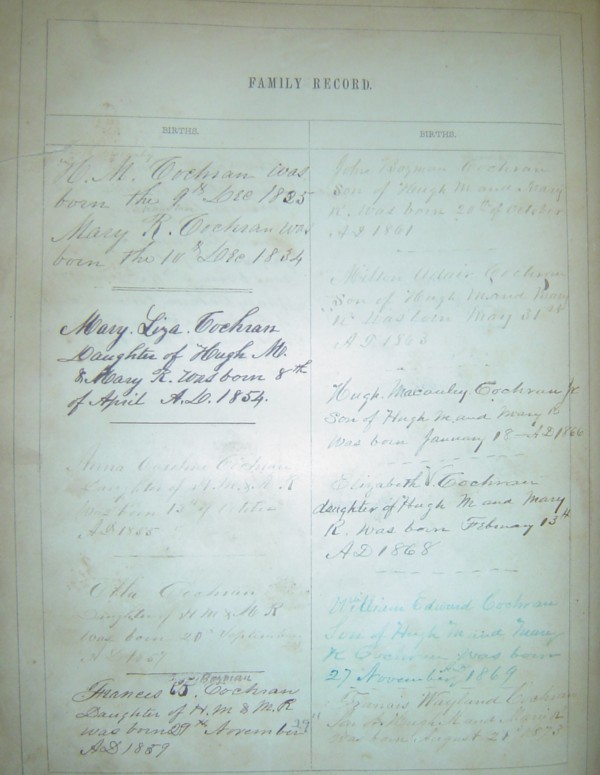 FAMILY RECORD.
BIRTHS.
H. M. Cochran Was
born the 9th Dec 1835
Mary R. Cochran Was
born the 10th Dec 1834
Mary. Liza. Cochran
Daughter of Hugh M.
& Mary R. Was born 8th
of April A.D. 1854.
Anna Caroline Cochran
Daughter of H M & M R
Was born 13th of October
AD 1855
Cochran
Daughter of H M & M R
Was born 20th September
AD 1857
Bozman
Frances B. Cochran
Daughter of H. M & M. R
Was born 29th November
AD 1859
BIRTHS.
John Bozman Cochran
Son of Hugh M and Mary
R. Was born 20th of October
AD 1861
Milton Adair Cochran
Son of Hugh M. and Mary
R Was born May 31st
AD 1863
Hugh Macauley Cochran Jr
Son of Hugh M. and Mary R
Was born January 18 AD 1866
Elizabeth V Cochran
daughter of Hugh M and Mary
R. Was born February 13th
AD 1868
William Edward Cochran
Son of Hugh M and Mary
R Cochran was born
27 November 1869
Francis Wayland Cochran
Son of Hugh M and
Was born August 21st 1873